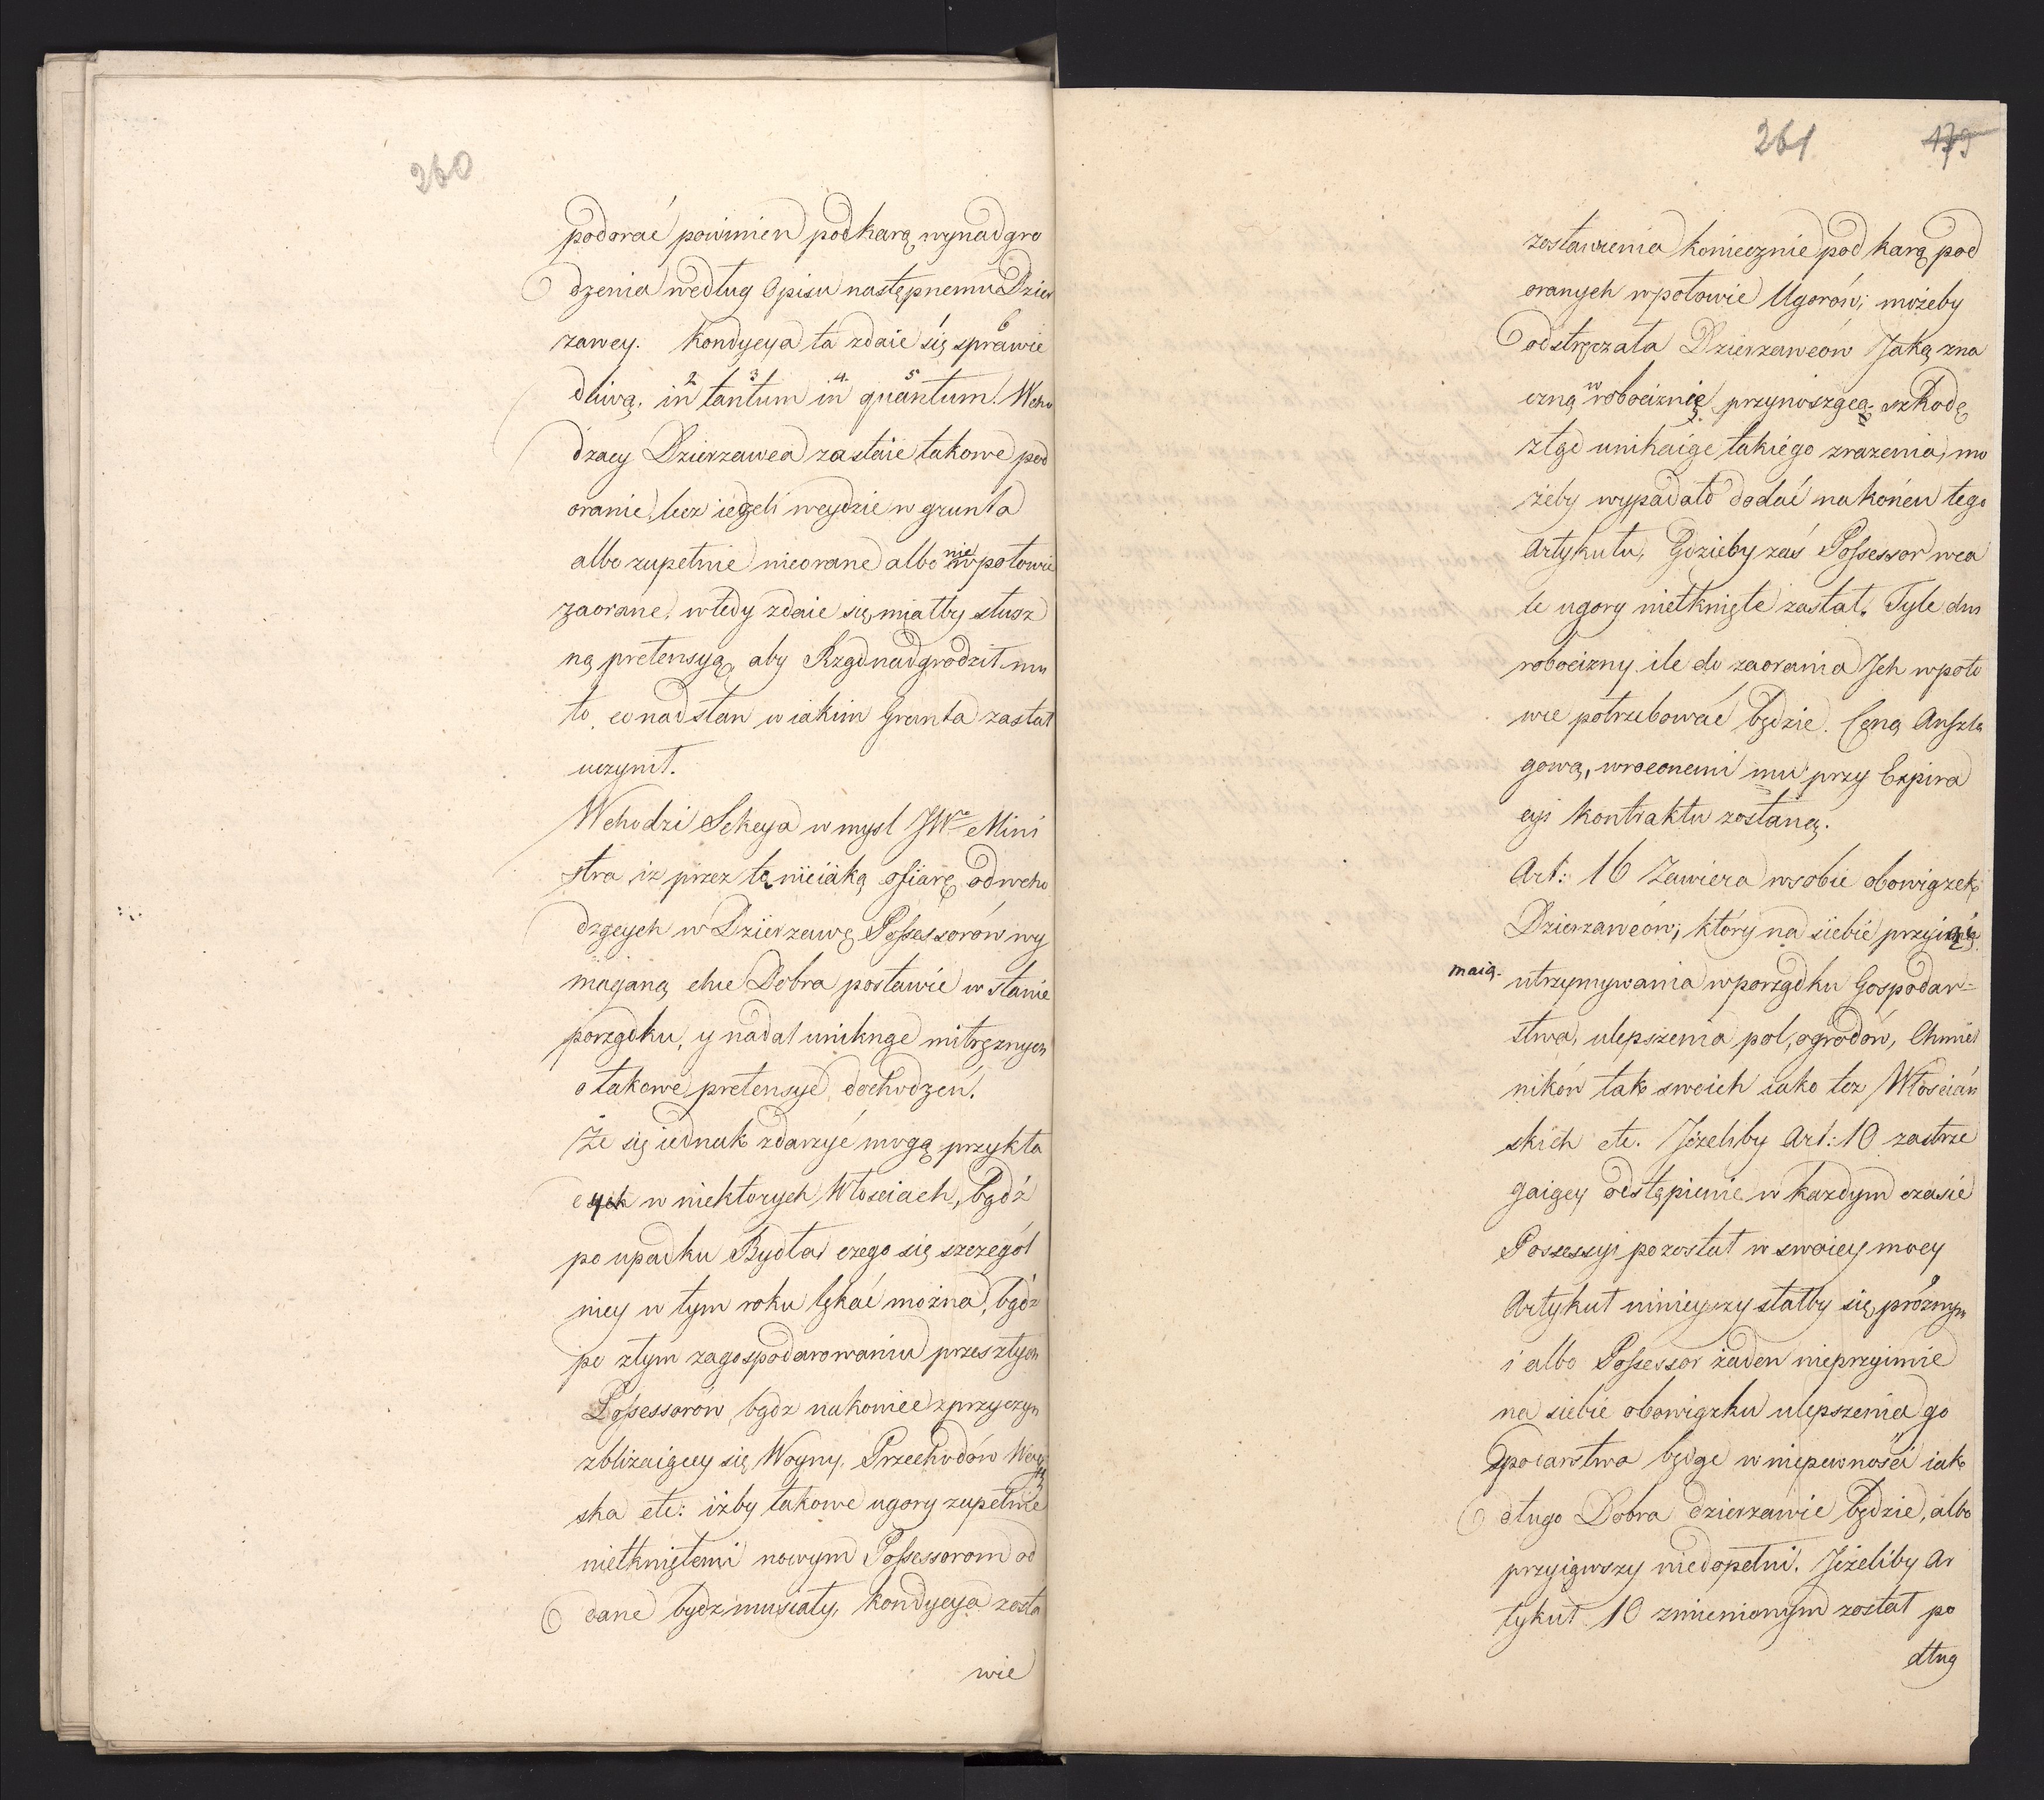 260
podorać powinien pod karą wynadgro
dzenia według Opisu następnemu Dzier
zawcy. Kondycya ta zdaie się sprawie
dliwą, in tantum in quantum Wcho
dzacy Dzierzawca zastaie takowe pod
oranie, lecz ieżeli weydzie w grunta
albo zupełnie nieorane albo nie wpołowie
zaorane, wtedy zdaie się miałby słusz
ną pretensyą, aby Rząd nadgrodził mu
to, co nad stan w iakim Grunta zastał
uczynił.
Wchodzi Sekcya w mysl JW Mini
stra, iz przez tę nieiaką ofiarę odwcho
dzących w Dzierzawę Possessorów wy
maganą chce Dobra postawić w stanie
porządku, y nadal uniknąć mitręznych
o takowe pretensye dochodzeń.
Ze się iednak zdarzyć mogą przykła
dy w niektorych Włosciach, bądź
po upadku Bydła, czego się szczegól
niey w tym roku lękać można, bądz
po złym zagospodarowaniu przeszłych
Possessorów, bądz nakoniec z przyczyn
zblizaiącey się Woyny, Przechodów Woy
ska etc: iżby takowe ugory zupełnie
nietkniętemi nowym Possessorom od
dane bydz musiały, kondycya zosta
wie
261 179
zostawienia koniecznie pod karą pod
oranych wpołowie Ugorów, możeby
odstręczała Dzierzawców Jaką zna
czną w robociznie przynoszącą szkodę
ztąd unikaiąc takiego zrazenia, mo
żeby wypadało dodać na końcu tego
Artykułu, Gdzieby zaś Possessor wca
le ugory nietknięte zastał, Tyle dni
robocizny ile do zaorania Jch wpoło
wie potrzebować będzie, Ceną Anszla
gową, wroconemi mu przy Expira
cyi kontraktu zostaną.
Art: 16 Zawiera w sobie obowiązek
Dzierzawców, który na siebie przyiąć
maią utrzymywania w porządku Gospodar=
stwa, ulepszenia pol, ogrodów, Chmiel
ników tak swoich iako tez Włoscian
skich etc. Jeżeliby Art: 10 zastrze
gaiący odstąpienie w kazdym czasie
Possessyi pozostał w swoiey mocy
Artykuł ninieyszy stałby się próżnym
i albo Possessor żaden nieprzyimie
na siebie obowiązku ulepszenia go
spodarstwa będąc w niepewności iak
długo Dobra dzierzawić będzie, albo
przyiąwszy niedopełni. Jeżeliby Ar
tykuł 10 zmienionym został po
dług